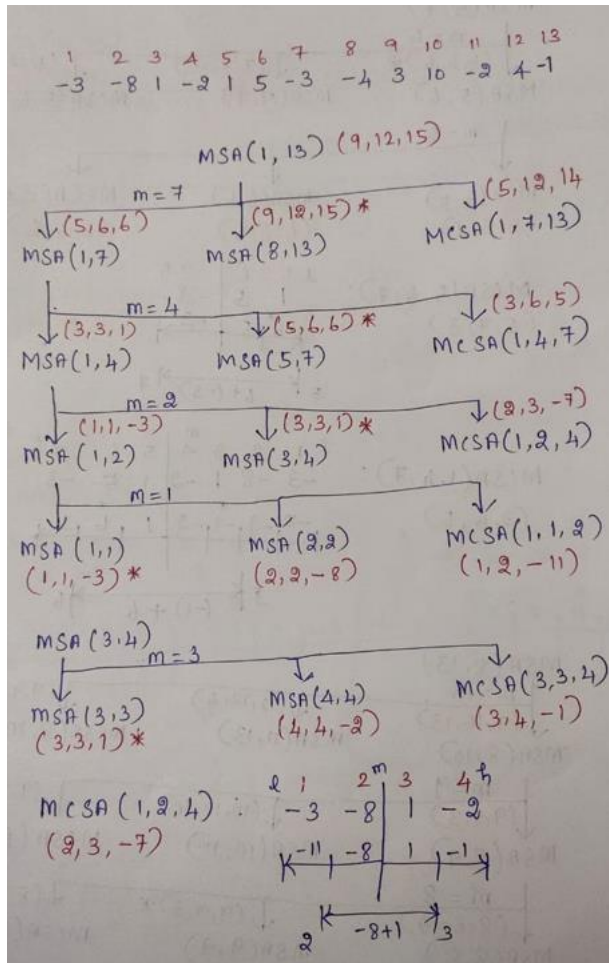 1 2 3 4 5 6 7 8 9 10 11 12 13
-3 -8 1 -2 1 5 -3 -4 3 10 -2 4 -1
MSA(1, 13) (9, 12, 15)
m = 7
(5, 6, 6) (9, 12, 15) * (5, 12, 14
MSA(1, 7) MSA(8, 13) MCSA(1, 7, 13)
m = 4
(3, 3, 1) (5, 6, 6) * (3, 6, 5)
MSA(1, 4) MSA(5, 7) MCSA(1, 4, 7)
m = 2
(1, 1, -3) (3, 3, 1) * (2, 3, -7)
MSA(1, 2) MSA(3, 4) MCSA(1, 2, 4)
m = 1
MSA(1, 1) MSA(2, 2) MCSA(1, 1, 2)
(1, 1, -3) * (2, 2, -8) (1, 2, -11)
MSA(3, 4)
m = 3
MSA(3, 3) MSA(4, 4) MCSA(3, 3, 4)
(3, 3, 1) * (4, 4, -2) (3, 4, -1)
l 1 2 m 3 4 h
MCSA(1, 2, 4) : -3 -8 1 -2
(2, 3, -7) -11 -8 1 -1
2 -8+1 3